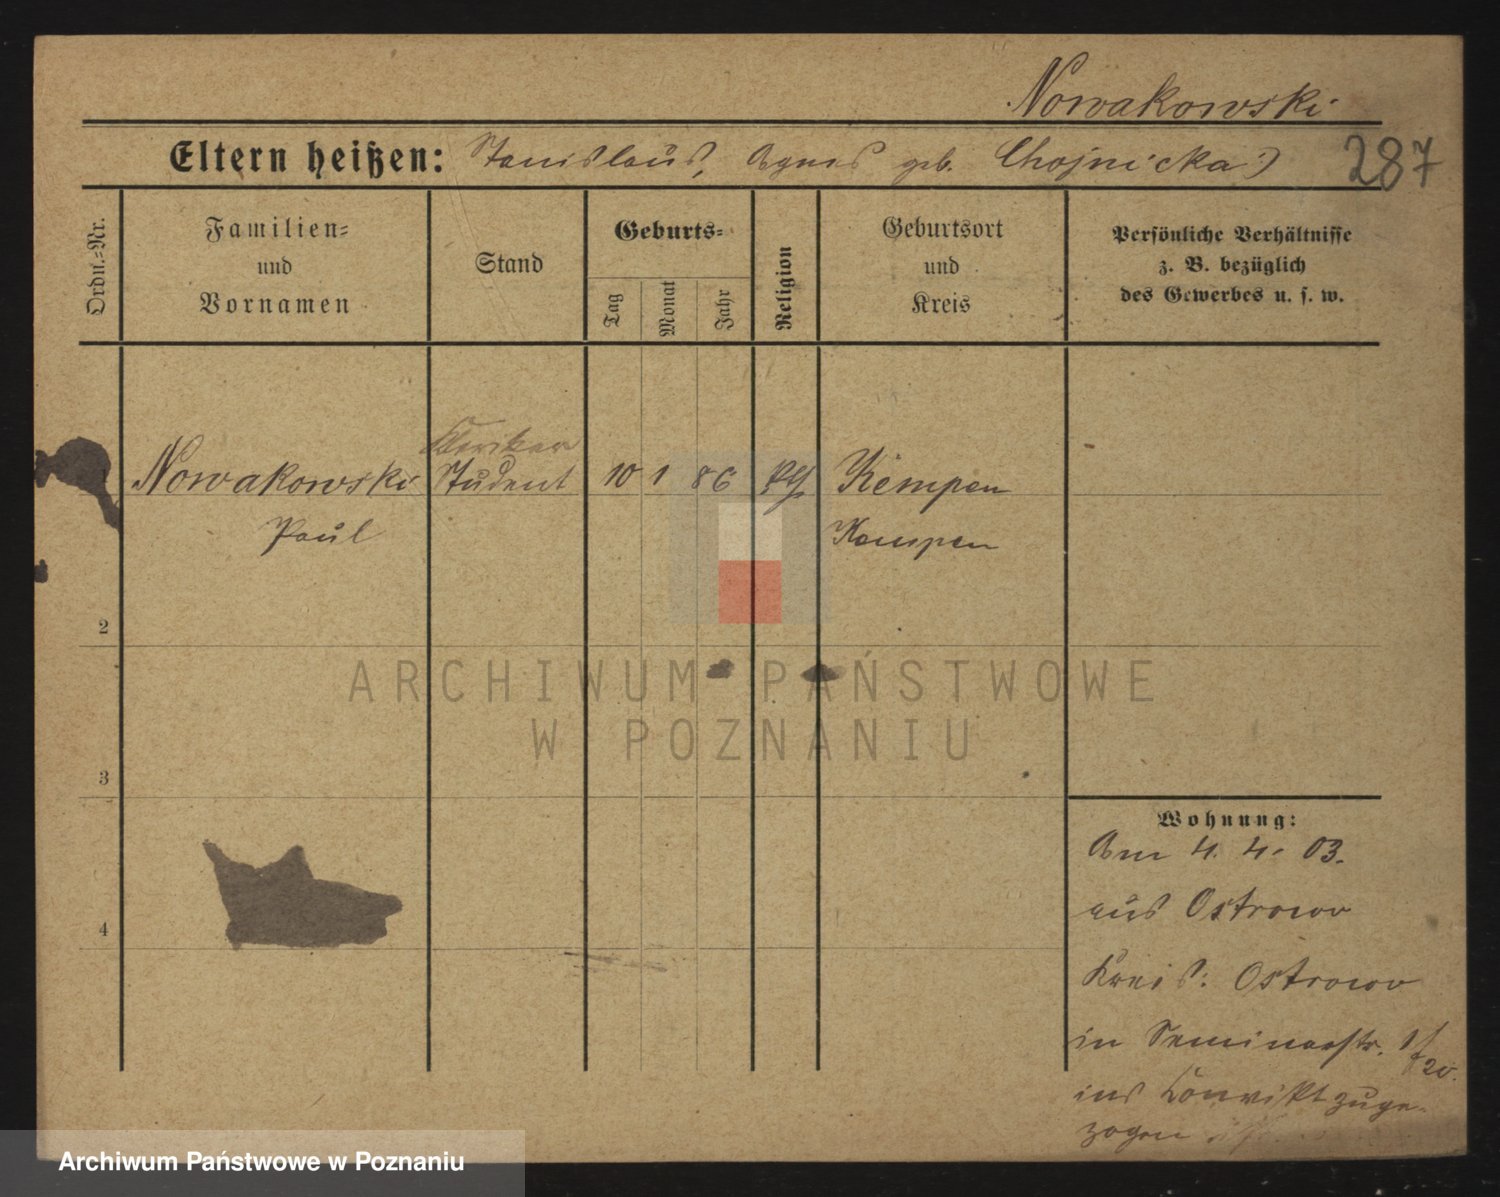 Nowakowski
Eltern heißen: Stanislaus, Agnes geb. Chojnicka)
287
Ordn.-Nr.
Familien-
und
Vornamen
Stand
Geburts-
Tag
Monat
Jahr
Religion
Geburtsort
und
Kreis
Persönliche Verhältnisse
z. B. bezüglich
des Gewerbes u. s. w.
Kleriker
1 Nowakowski Student 10 1 86 Kempen
Paul Kempen
2
ARCHIWUM PAŃSTWOWE
W POZNANIU
3
4
Wohnung:
Am 4. 4. 03.
aus Ostrowo
Kreis: Ostrowo
in Seminarstr.
ins Konvikt zuge-
zogen
Archiwum Państwowe w Poznaniu